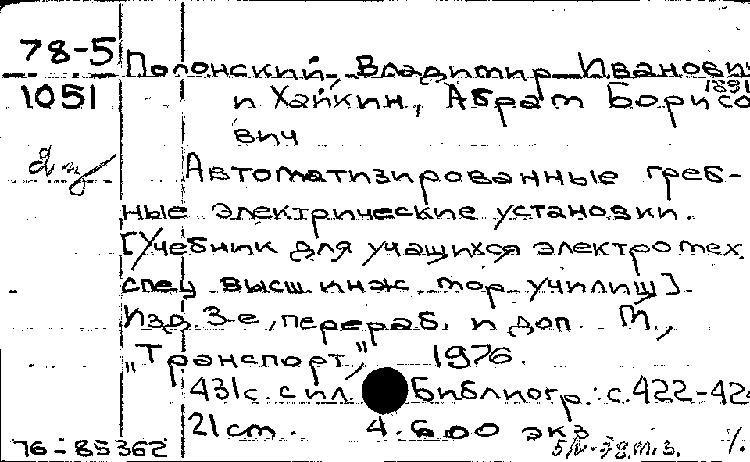 78-5
1051
Полонский, Владимир Иванович
и Хайкин, Абрам Борисо
вич
Автоматизированные греб-
ные электрические установки.
[Учебник для учащихся электромех.
спец высш. инж. мор. училищ].
Изд. 3-е, перераб. и доп. М.,
„Транспорт", 1976.
431 с. с ил. Библиогр.: с. 422-42
21 см. 4.600 экз
76-85362